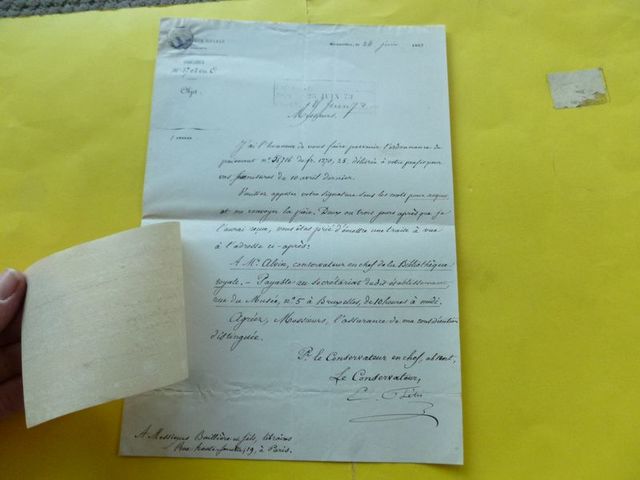 Bruxelles, le 24 juin 187
Objet.
25 JUIN 73
Messieurs,
J'ai l'honneur de vous faire parvenir l'ordonnance de
paiement n° 35716 de fr. 1270,25, délivrée à votre profit pour
vos fournitures du 10 avril dernier.
Veuillez apposer votre signature sous les mots pour acquit
et me renvoyer la pièce. Deux ou trois jours après que je
l'aurai reçue, vous êtes prié d'émettre une traite à vue
à l'adresse ci-après:
A Mr. Alvin, conservateur en chef de la Bibliothèque
royale. — Payable au secrétariat dudit établissement,
rue du Musée, n° 5 à Bruxelles, de 10 heures à midi.
Agréer, Messieurs, l'assurance de ma considération
distinguée.
Pr. le Conservateur en chef, absent,
Le Conservateur,
E Fétis
A Messieurs Baillière et fils, libraires
Rue Hautefeuille, 19, à Paris.